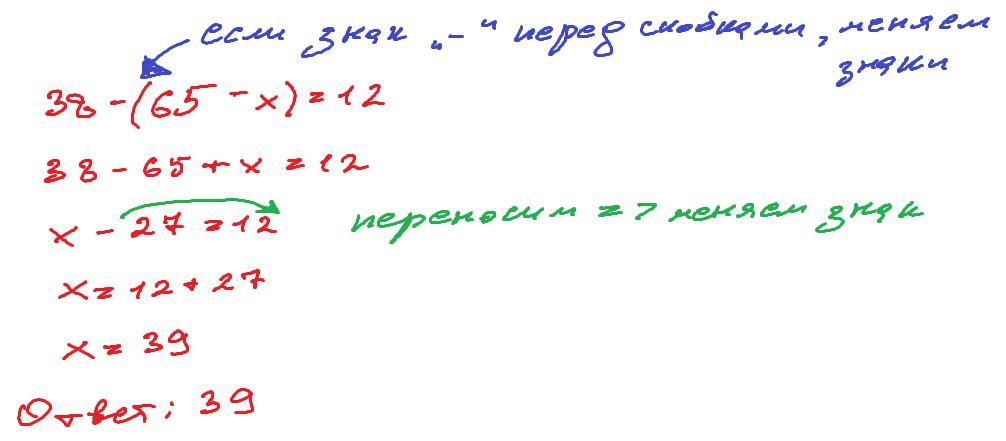 если знак „-“ перед скобками, меняем
знаки
38 - (65 - x) = 12
38 - 65 + x = 12
x - 27 = 12 переносим => меняем знак
x = 12 + 27
x = 39
Ответ: 39